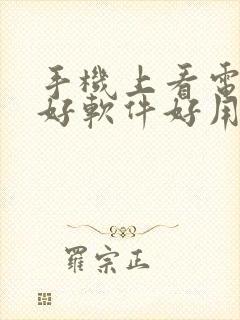 手機上看電
好軟件好用
羅宗正